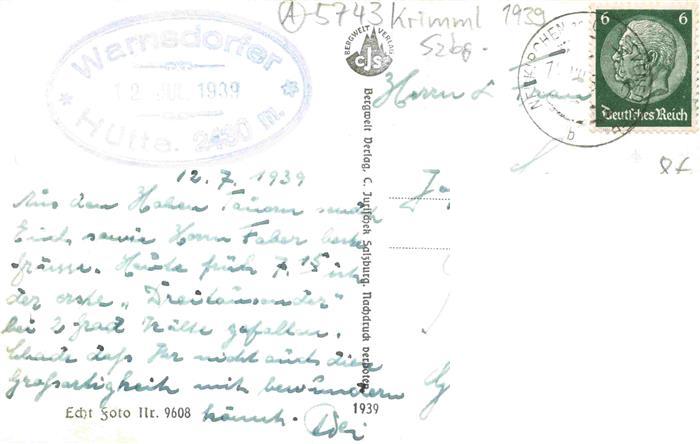 (A)-5743 Krimml 1939
Szbg.
Warnsdorfer
12. JUL. 1939
Hütte. 2430 m.
BERGWELT VERLAG
CJS
6 6
Deutsches Reich
NEUKIRCHEN
b
Herrn & Frau
12.7.1939
Aus den Hohen Tauern sendet
Euch sowie Herrn Faber beste
Grüsse. Heute früh 7.15 ist
der erste „Dreitausender"
bei 2 Grad Kälte gefallen.
Schade daß Ihr nicht auch diese
Großartigkeit mit bewundern
könnt.
Bergwelt Verlag, C. Jurischek Salzburg. Nachdruck verboten
Echt Foto Nr. 9608
1939